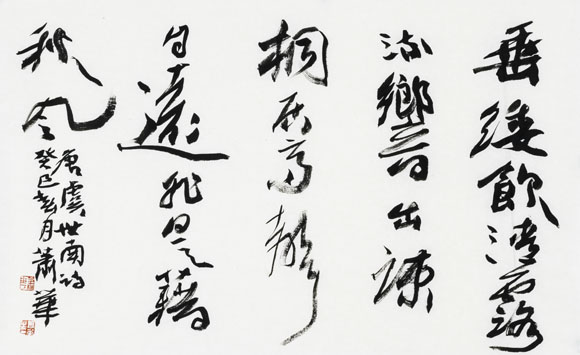 垂緌飲清露
流響出疎
桐居高聲
自遠非是藉
秋風
唐虞世南詩
癸巳春月蕭華